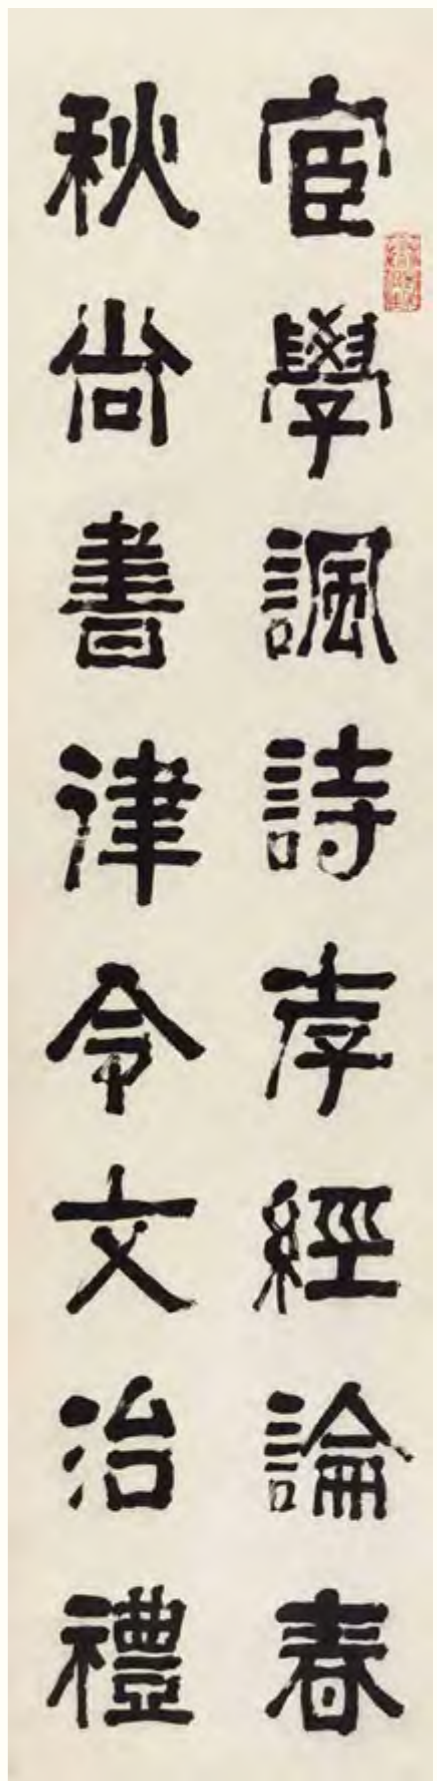 宦學諷詩孝經論春
秋尚書律令文治禮